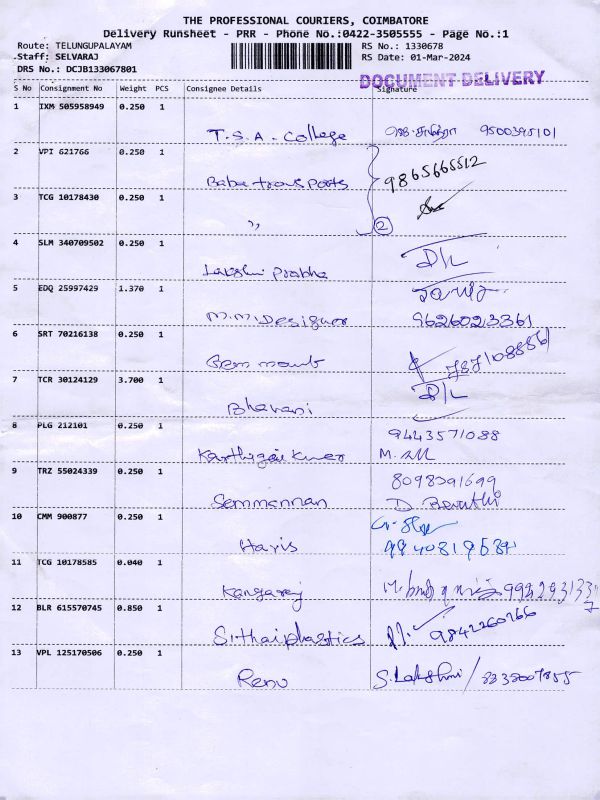 THE PROFESSIONAL COURIERS, COIMBATORE
Delivery Runsheet - PRR - Phone No.:0422-3505555 - Page No.:1
Route: TELUNGUPALAYAM RS No.: 1330678
Staff: SELVARAJ RS Date: 01-Mar-2024
DRS No.: DCJB133067801
DOCUMENT DELIVERY
S No Consignment No Weight PCS Consignee Details Signature
1 IXM 505958949 0.250 1
T.S.A. College 9500395101
2 VPI 621766 0.250 1
Baba transports 9865665512
3 TCG 10178430 0.250 1
,, 2
4 SLM 340709502 0.250 1
Lakshmi Prabha D/L
5 EDQ 25997429 1.370 1
M.M.Designer 9626023361
6 SRT 70216138 0.250 1
Gem mount
7 TCR 30124129 3.700 1
Bhavani D/L
8 PLG 212101 0.250 1
9443571088
Karthigai Kumar
9 TRZ 55024339 0.250 1
8098391699
Semmannan D. Revathi
10 CMM 900877 0.250 1
Haris
11 TCG 10178585 0.040 1
Kangaraj
12 BLR 615570745 0.850 1
Sithaiplastics 9842260266
13 VPL 125170506 0.250 1
Renu S.Lakshmi/